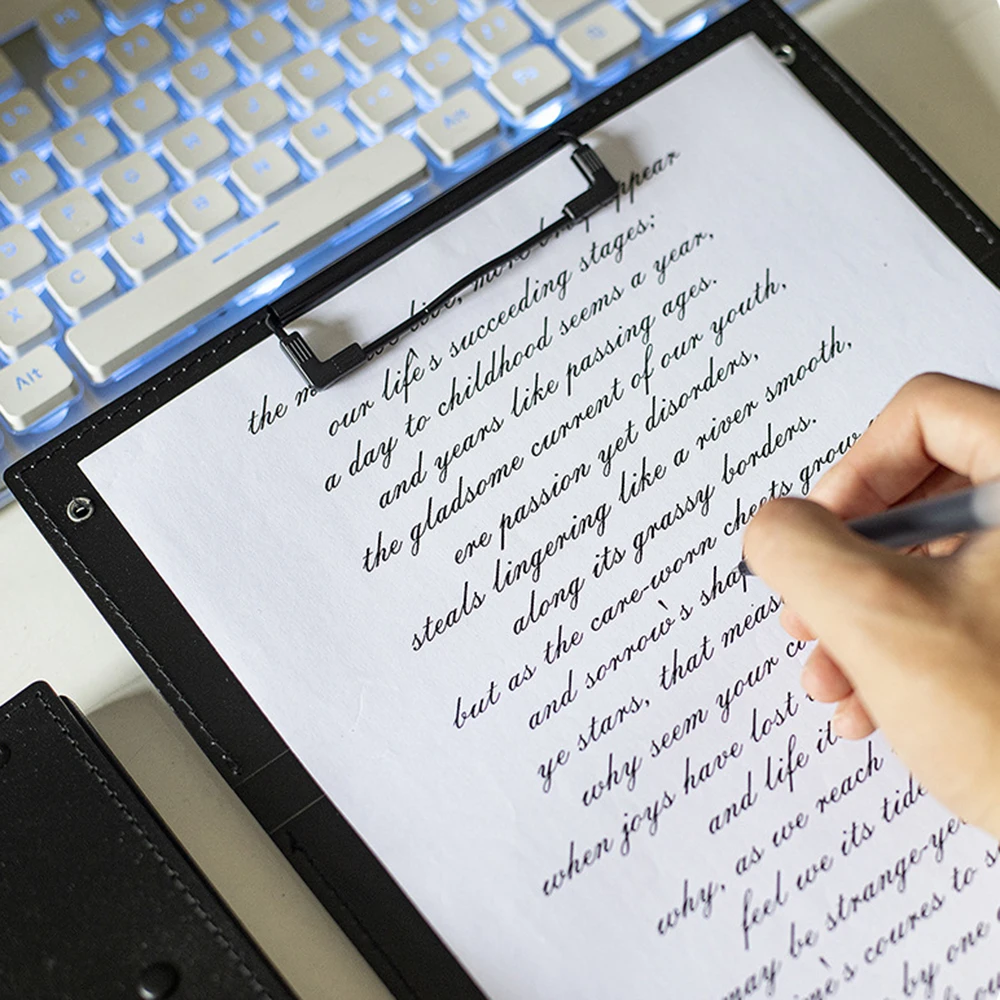 the more we live, more brief appear
our life's succeeding stages;
a day to childhood seems a year,
and years like passing ages.
the gladsome current of our youth,
ere passion yet disorders,
steals lingering like a river smooth,
along its grassy borders.
but as the care-worn cheets grow
and sorrow's
ye stars, that
why seem your
when joys have lost
and life
why, as we reach
feel we its
may be
coures to
by one
Alt
Alt
X
C
V